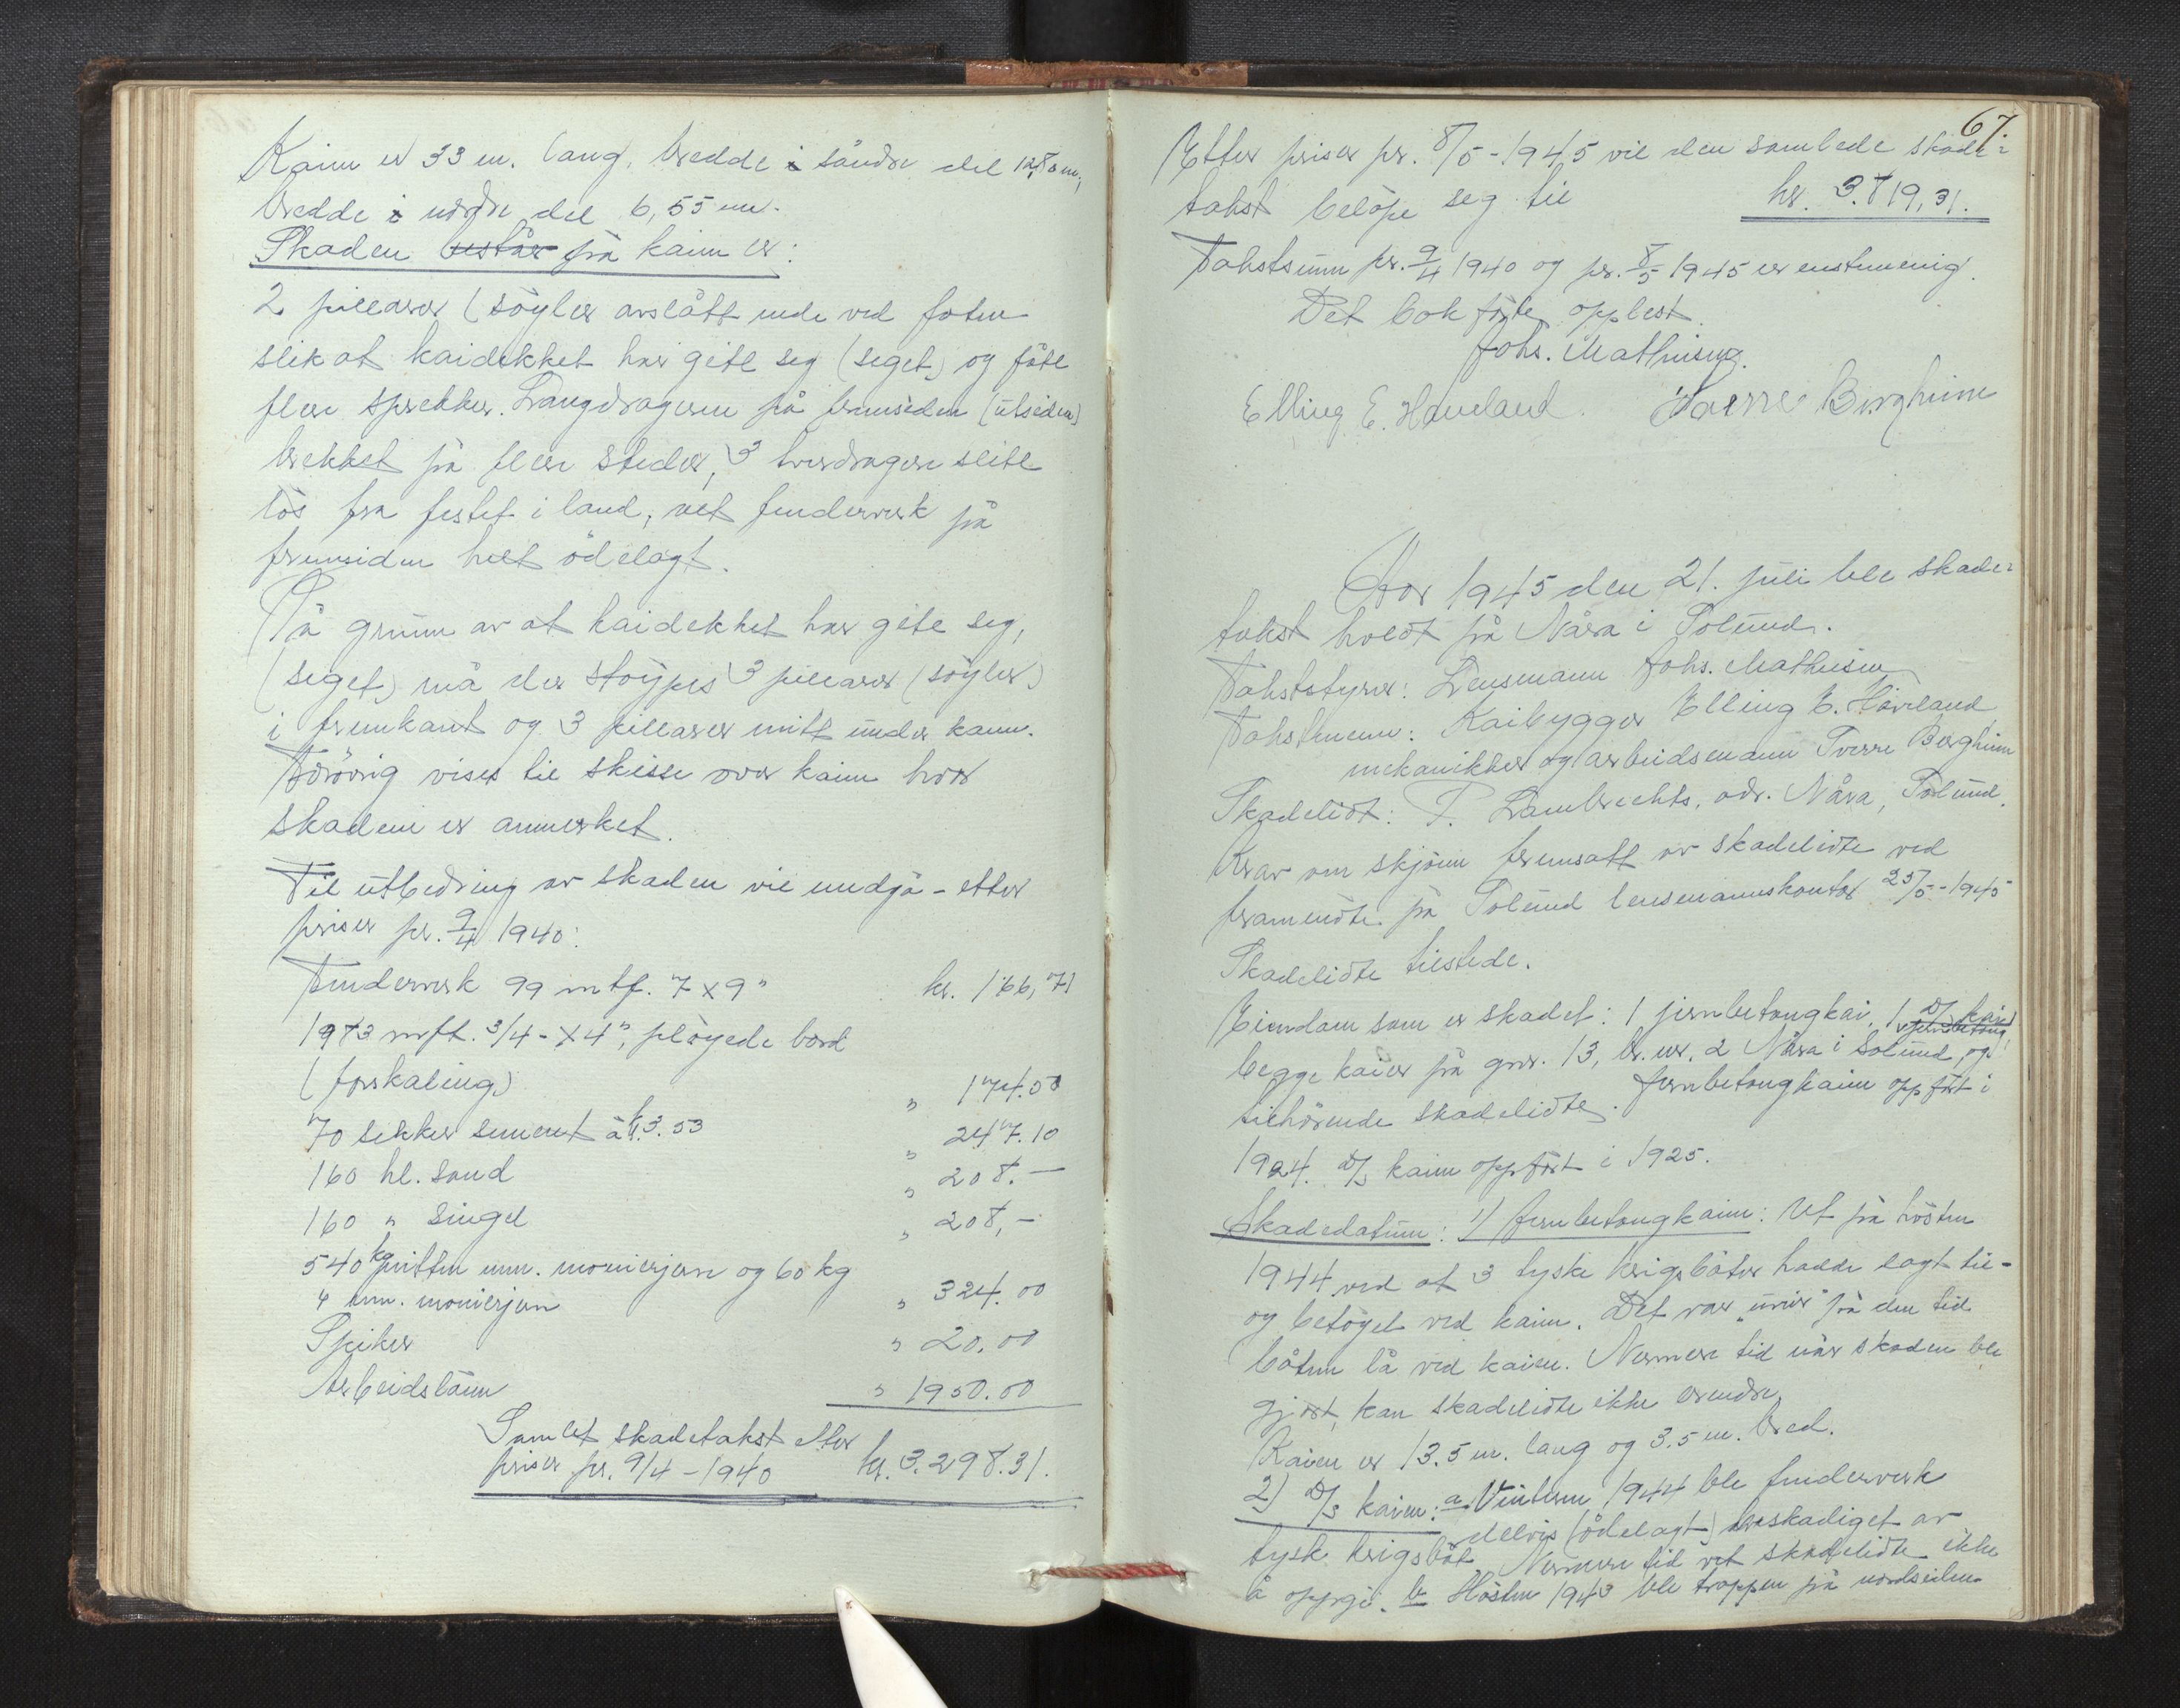 Kaien er 33 m. lang, bredde i söndre del 12,80 m,
bredde i nordre del 6,55 m.
Skaden består på kaien er:
2 pillarer (söyler avslått nede ved foten
slik at kaidekket har gitt seg (seget) og fått
flere sprekker. Langdrageren på fremsiden (utsiden)
brekket på flere steder, 3 tverdragere slitt
lös fra festet i land, alt fenderverk på
fremsiden helt ödelagt.
På grunn av at kaidekket har gitt seg,
(seget) må der stöypes 3 pillarer (söyler)
i fremkant og 3 pillarer mitt under kaien.
Forövrig vises til skisse over kaien hvor
skadene er anmerket.
Til utbedring av skaden vil medgå - etter
priser pr. 9/4 1940:
Fenderverk 99 mtf. 7 x 9" kr. 166,71
1983 mft. 3/4 - x 4", plöyede bord
(forskaling) " 174.50
70 sekker sement à kr. 3.53 " 247.10
160 hl. sand " 208.-
160 " singel " 208,-
540 kg fritten mm. monierjern og 60 kg
4 mm. monierjern " 324.00
Spiker " 20.00
Arbeidslönn " 1950.00
Samlet skadetakst etter
priser pr. 9/4 - 1940 kr. 3.298.31.
67.
Etter priser pr. 8/5 - 1945 vil den samlede skade=
takst belöpe seg til kr. 3.819,31.
Takstsum pr. 9/4 1940 og pr. 8/5 1945 er enstemmig.
Det bokförte opplest.
Johs. Mathiesen.
Elling E. Haveland. Sverre Borgheim
Aar 1945 den 21. juli ble skade=
takst holdt på Nåra i Solund.
Takststyrer: Lensmann Johs. Mathiesen
Takstmenn: Kaibygger Elling E. Håveland
mekanikker og arbeidsmann Sverre Borgheim
Skadelidt: P. Lambrechts, adr. Nåra, Solund.
Krav om skjönn fremsatt av skadelidte ved
frammöte på Solund lensmannskontor 25/5 - 1945
Skadelidte tilstede.
Eiendom som er skadet: 1 jernbetongkai, 1 D/s kai
v/jernbetong
begge kaier på gnr. 13, br. nr. 2 Nåra i Solund, og
tilhörende skadelidte. Jernbetongkaien oppfört i
1924. D/s kaien oppfört i 1925.
Skadedatum: 1) Jernbetongkaien: Ut på hösten
1944 ved at 3 tyske krigsbåter hadde lagt til -
og betöyet ved kaien. Det var "uvær" på den tid
båten lå ved kaien. Nermere tid når skaden ble
gjort, kan skadelidte ikke erindre.
Kaien er 13.5 m. lang og 3.5 m. bred.
2) D/s kaien: a. Vinteren 1944 ble fenderverk
delvis (ödelagt) beskadiget av
tysk krigsbåt. Nermere tid vet skadelidte ikke
å oppgi. b Hösten 1943 ble trappen på nordsiden